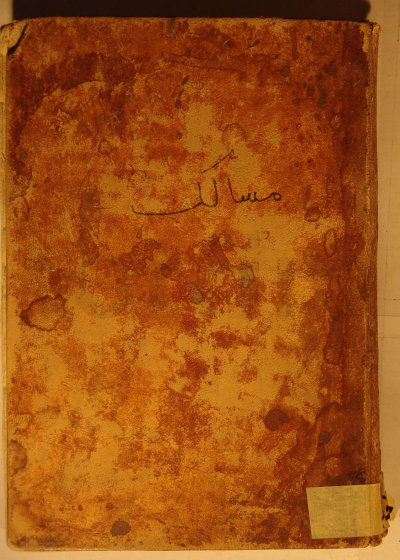 مسالک